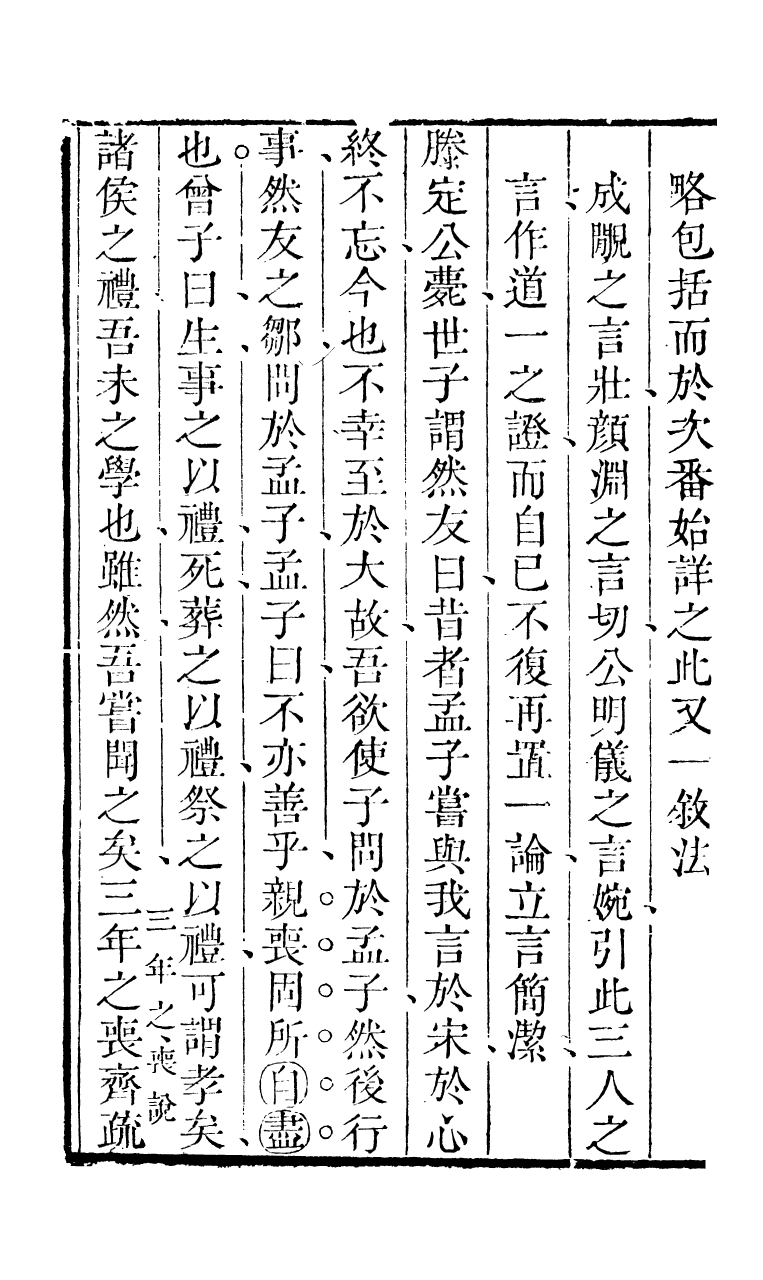 略包括而於次番始詳之此又一敘法
成覵之言壯顏淵之言切公明儀之言婉引此三人之
言作道一之證而自已不復再置一論立言簡潔
滕定公薨世子謂然友曰昔者孟子嘗與我言於宋於心
終不忘今也不幸至於大故吾欲使子問於孟子然後行
事然友之鄒問於孟子孟子曰不亦善乎親喪固所自盡
也曾子曰生事之以禮死葬之以禮祭之以禮可謂孝矣
三年之喪說
諸侯之禮吾未之學也雖然吾嘗聞之矣三年之喪齊疏